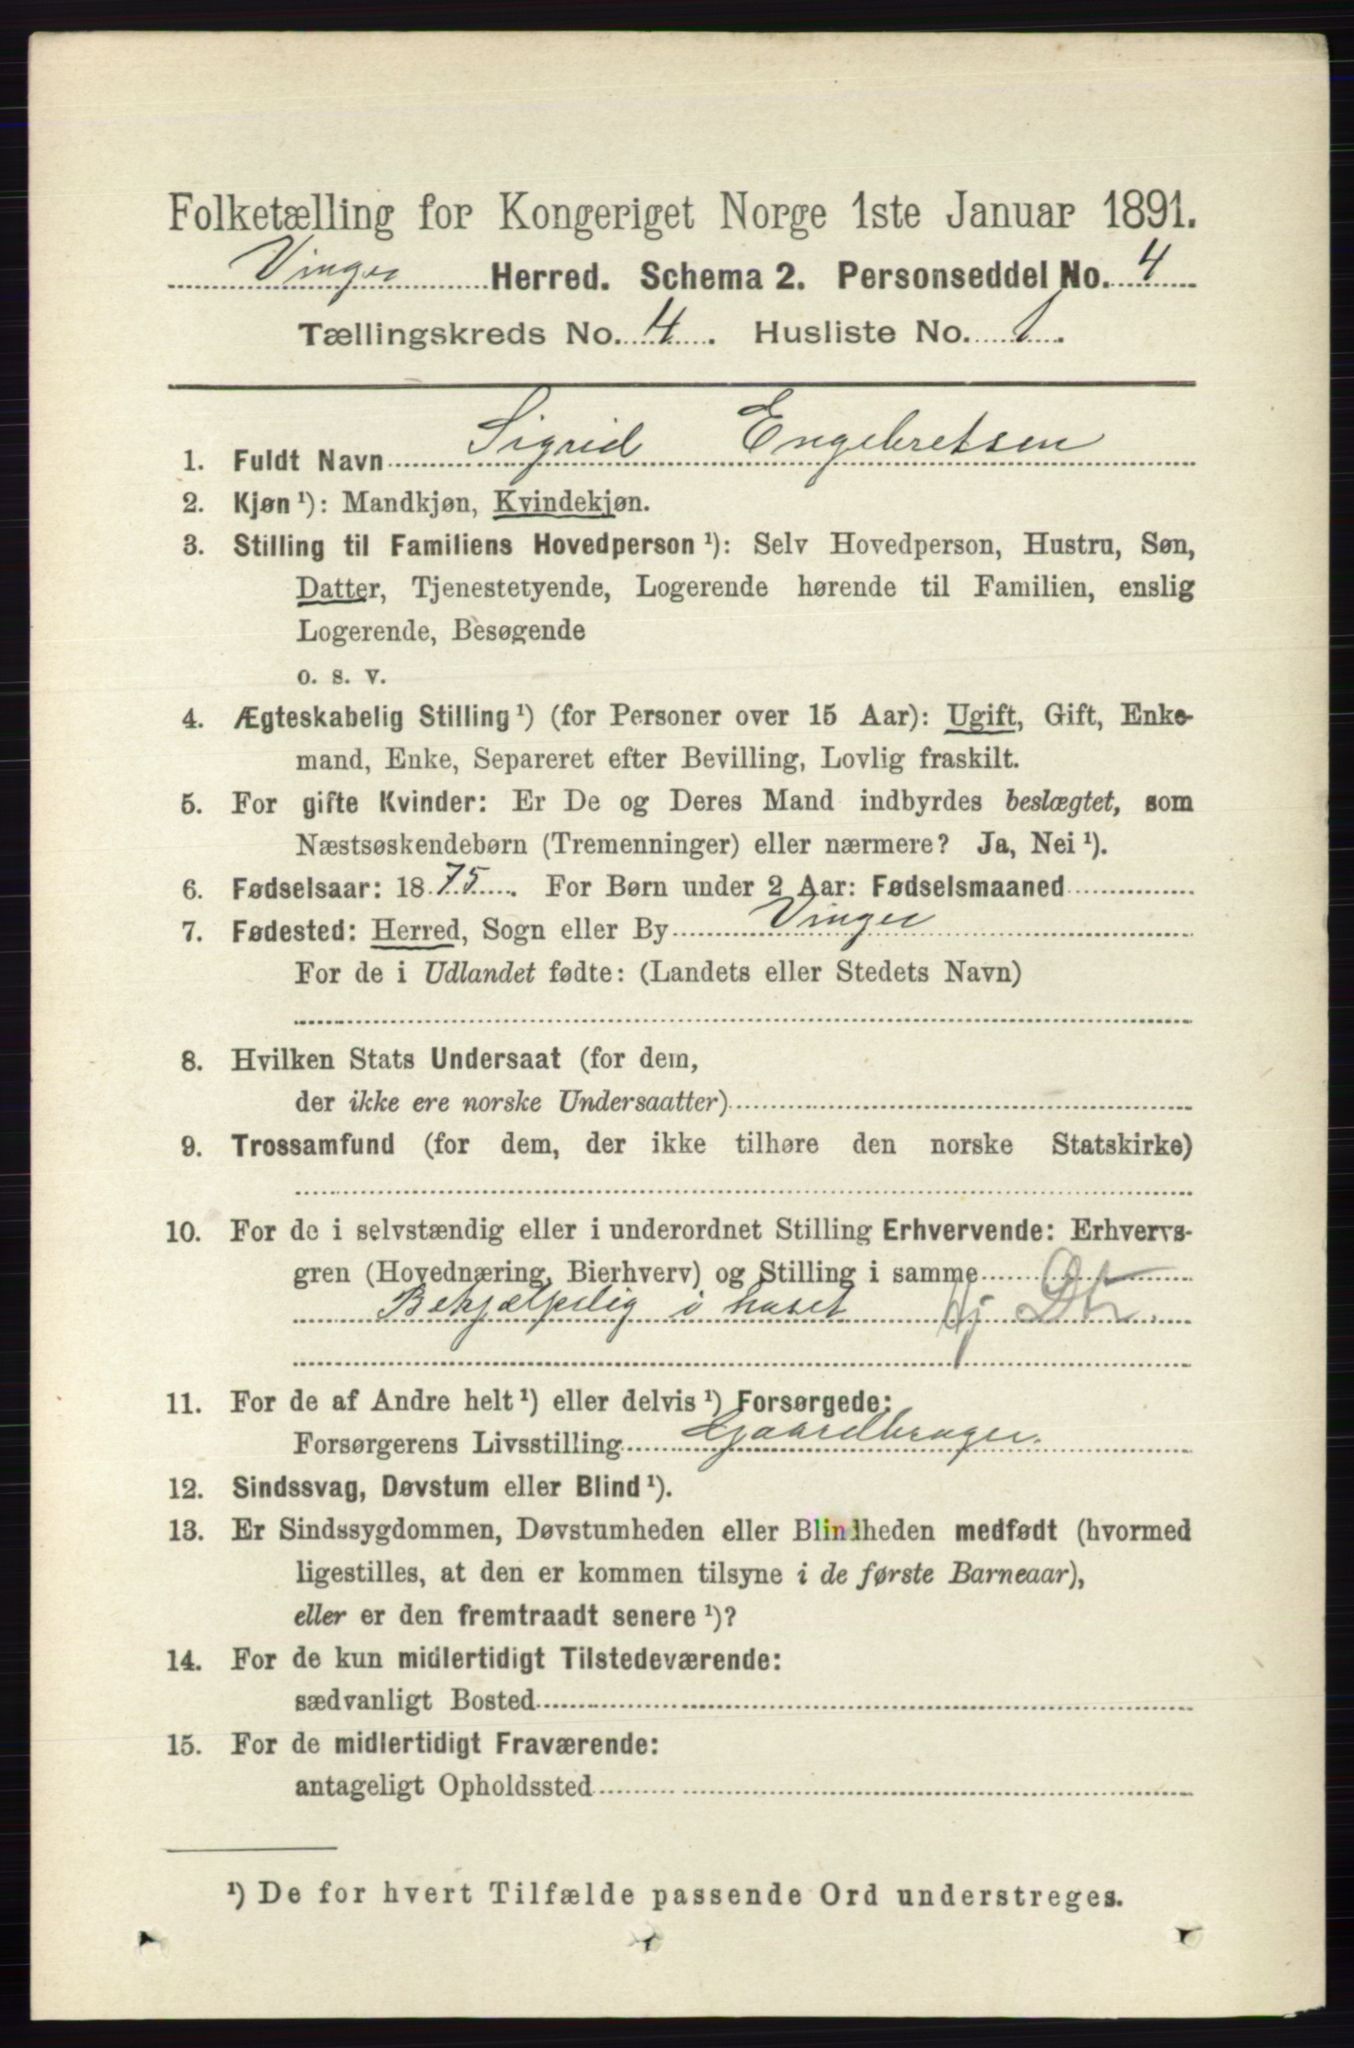 Folketælling for Kongeriget Norge 1ste Januar 1891.
Vinger Herred. Schema 2. Personseddel No. 4
Tællingskreds No. 4. Husliste No. 1.
1. Fuldt Navn Sigrid Engebretsen
2. Kjøn ¹): Mandkjøn, Kvindekjøn.
3. Stilling til Familiens Hovedperson ¹): Selv Hovedperson, Hustru, Søn,
Datter, Tjenestetyende, Logerende hørende til Familien, enslig
Logerende, Besøgende
o. s. v.
4. Ægteskabelig Stilling ¹) (for Personer over 15 Aar): Ugift, Gift, Enke-
mand, Enke, Separeret efter Bevilling, Lovlig fraskilt.
5. For gifte Kvinder: Er De og Deres Mand indbyrdes beslægtet, som
Næstsøskendebørn (Tremenninger) eller nærmere? Ja, Nei ¹).
6. Fødselsaar: 1875. For Børn under 2 Aar: Fødselsmaaned
7. Fødested: Herred, Sogn eller By Vinger
For de i Udlandet fødte: (Landets eller Stedets Navn)
8. Hvilken Stats Undersaat (for dem,
der ikke ere norske Undersaatter)
9. Trossamfund (for dem, der ikke tilhøre den norske Statskirke)
10. For de i selvstændig eller i underordnet Stilling Erhvervende: Erhvervs-
gren (Hovednæring, Bierhverv) og Stilling i samme
Behjælpelig i huset Hj Dtr.
11. For de af Andre helt ¹) eller delvis ¹) Forsørgede:
Forsørgerens Livsstilling Gaardbruger.
12. Sindssvag, Døvstum eller Blind ¹).
13. Er Sindssygdommen, Døvstumheden eller Blindheden medfødt (hvormed
ligestilles, at den er kommen tilsyne i de første Barneaar),
eller er den fremtraadt senere ¹)?
14. For de kun midlertidigt Tilstedeværende:
sædvanligt Bosted
15. For de midlertidigt Fraværende:
antageligt Opholdssted
¹) De for hvert Tilfælde passende Ord understreges.